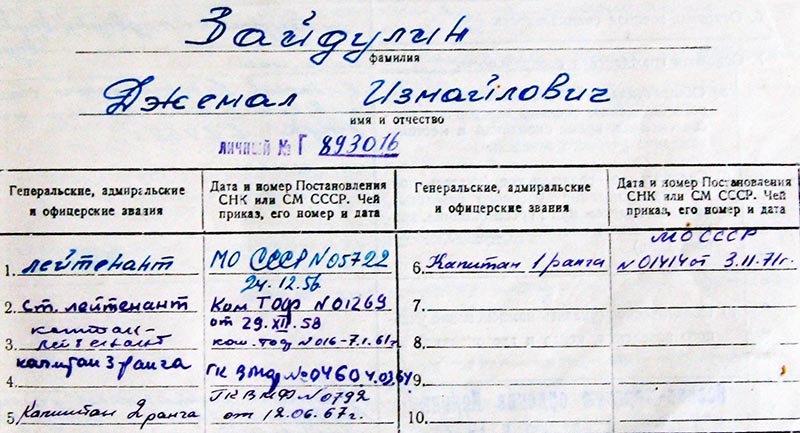 Зайдулин
фамилия
Джемал Измайлович
имя и отчество
ЛИЧНЫЙ № Г 893016
Генеральские, адмиральские
и офицерские звания
Дата и номер Постановления
СНК или СМ СССР. Чей
приказ, его номер и дата
Генеральские, адмиральские
и офицерские звания
Дата и номер Постановления
СНК или СМ СССР. Чей
приказ, его номер и дата
1. лейтенант
МО СССР N 05722
24.12.56
2. ст. лейтенант
Ком ТОФ N 01269
от 29.XII.58
капитан-
3. лейтенант
ком. тоф N016-7.1.61г.
капитан 3 ранга
4.
ГК ВМФ №0460 4.03.64
5. Капитан 2 ранга
ГК ВМФ N0792
от 12.06.67г.
6. Капитан 1 ранга
МО СССР
N 01414 от 3.11.71г.
7.
8.
9.
10.